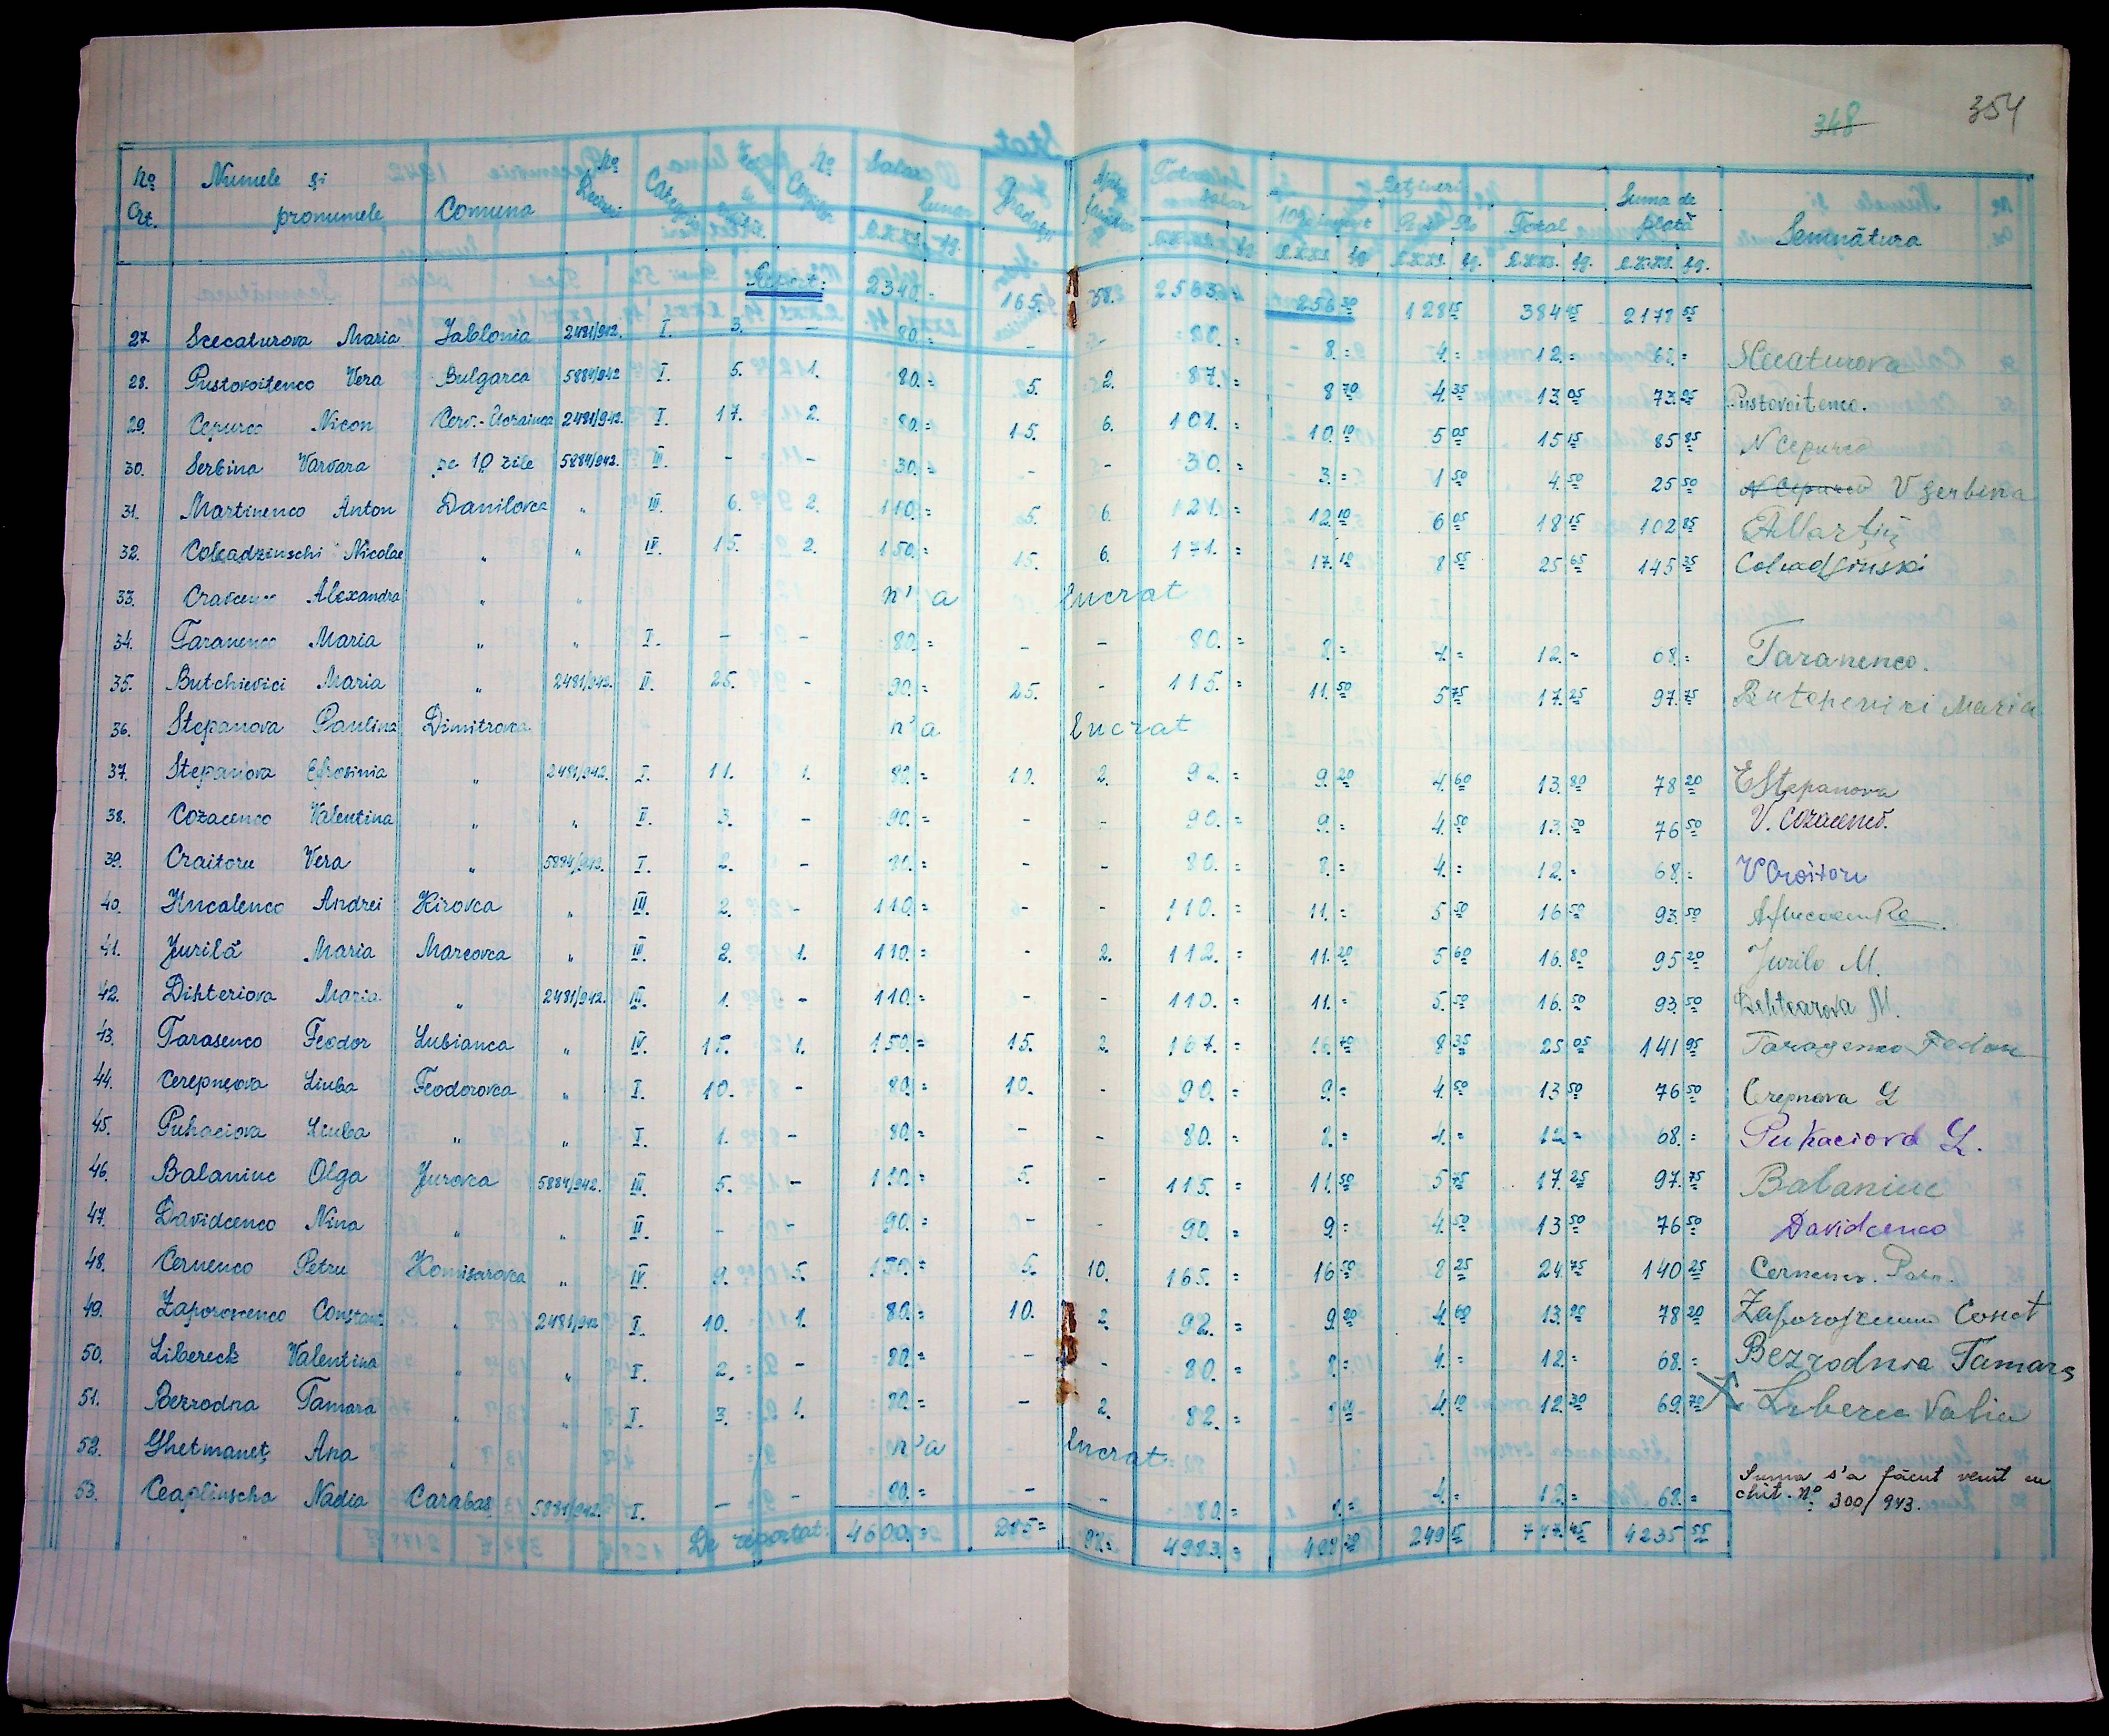 354
348
No Crt. Numele și pronumele Comuna No Categoria No Salar lunar Gradații Total salar Rețineri Total Suma de plată Semnătura
R.K.K.S. fg. R.K.K.S. fg. R.K.K.S. fg. R.K.K.S. fg. R.K.K.S. fg. R.K.K.S. fg.
Report: 2340.- 165. 58. 2563.= 256 30 128 15 384 45 2178 55
27. Scecaturova Maria Jablonia 2481/942. I. 3. - 80.= - - 80.= 8.= 4.= 12.= 68.= Scecaturova
28. Pustovoitenco Vera Bulgarca 5884/942 I. 5. 1. 80.= 5. 2. 87.= 8 70 4 35 13 05 73 95 Pustovoitenco.
29. Cepurco Nicon Cerv.-Ucrainca 2481/942. I. 17. 2. 80.= 15. 6. 101.= 10 10 5 05 15 15 85 85 N Cepurco
30. Serbina Varvara pe 10 zile 5884/942. III. - - 30.= - - 30.= 3.= 1 50 4 50 25 50 N Cepurco V Serbina
31. Martinenco Anton Danilovca " III. 6. 2. 110.= 5. 6. 121.= 12 10 6 05 18 15 102 85
32. Coleadzinschi Nicolae " " IV. 15. 2. 150.= 15. 6. 171.= 17 10 8 55 25 65 145 35
33. Cravcenco Alexandra " " n'a lucrat
34. Taranenco Maria " " I. - - 80.= - - 80.= 8.= 4.= 12.= 68.= Taranenco.
35. Butchievici Maria " 2481/942. II. 25. - 90.= 25. - 115.= 11 50 5 75 17 25 97 75 Maria
36. Stepanova Paulina Dimitrovca n'a lucrat
37. Stepanova Efrosinia " 2481/942. I. 11. 1. 80.= 10. 2. 92.= 9 20 4 60 13 80 78 20 EStepanova
38. Cozacenco Valentina " " II. 3. - 90.= - - 90.= 9.= 4 50 13 50 76 50 V. Cozacenco.
39. Craitoru Vera " 5884/942. I. 2. - 80.= - - 80.= 8.= 4.= 12.= 68.= V Croitoru
40. Jucalenco Andrei Kirovca " III. 2. - 110.= - - 110.= 11.= 5 50 16 50 93 50
41. Jurilă Maria Marcovca " III. 2. 1. 110.= - 2. 112.= 11 20 5 60 16 80 95 20 Jurilo M.
42. Dihteriova Maria " 2481/942. III. 1. - 110.= - - 110.= 11.= 5 50 16 50 93 50 Dehtearova M.
43. Tarasenco Feodor Lubianca " IV. 15. 1. 150.= 15. 2. 167.= 16 70 8 35 25 05 141 95 Tarasenco Fedor
44. Cerepneova Liuba Feodorovca " I. 10. - 80.= 10. - 90.= 9.= 4 50 13 50 76 50 Cerepnova L
45. Puhaciova Liuba " " I. 1. - 80.= - - 80.= 8.= 4.= 12.= 68.= Puhaciova L.
46. Balaniuc Olga Jurovca 5884/942. III. 5. - 110.= 5. - 115.= 11 50 5 75 17 25 97 75 Balaniuc
47. Davidcenco Nina " " II. - - 90.= - - 90.= 9.= 4 50 13 50 76 50 Davidcenco
48. Cernenco Petru Komisarovca " IV. 9. 5. 150.= 5. 10. 165.= 16 50 8 25 24 75 140 25 Cernenco
49. Zaporojcenco Constant. " 2481/942 I. 10. 1. 80.= 10. 2. 92.= 9 20 4 60 13 80 78 20 Const
50. Libereck Valentina " " I. 2. - 80.= - - 80.= 8.= 4.= 12.= 68.= Bezrodnia Tamara
51. Bezrodna Tamara " " I. 3. 1. 80.= - 2. 82.= 8 20 4 10 12 30 69 70
52. Ghetmaneț Ana " n'a lucrat
53. Ceaplinscha Nadia Carabaș 5884/942. I. - - 80.= - - 80.= 8.= 4.= 12.= 68.= Suma s'a făcut venit cu
chit. No 300/943.
De reportat: 4600.= 285= 98.= 4983.= 498 30 249 15 747 45 4235 55